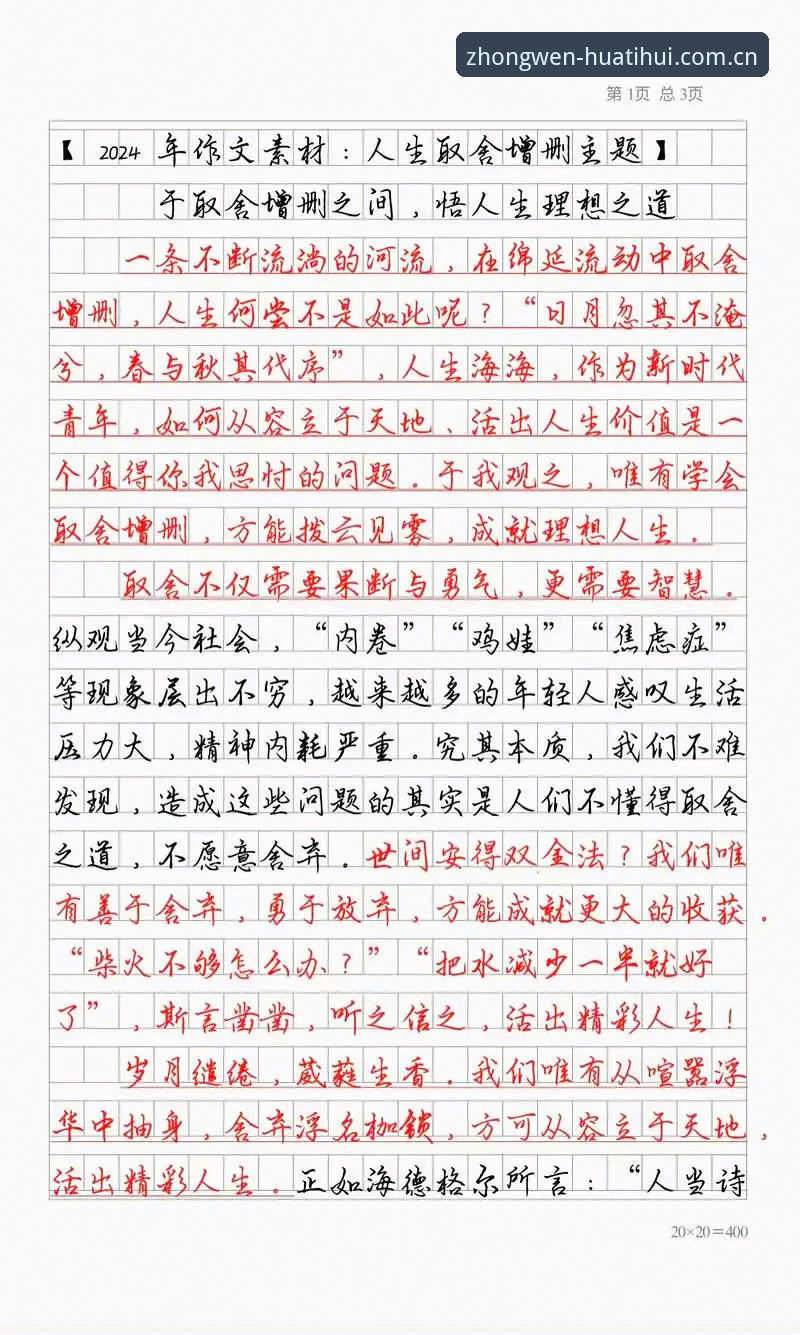 zhongwen-huatihui.com.cn
第1页 总3页
【2024年作文素材：人生取舍增删主题】
于取舍增删之间，悟人生理想之道
一条不断流淌的河流，在绵延流动中取舍
增删，人生何尝不是如此呢？“日月忽其不淹
兮，春与秋其代序”，人生海海，作为新时代
青年，如何从容立于天地、活出人生价值是一
个值得你我思忖的问题。于我观之，唯有学会
取舍增删，方能拨云见雾，成就理想人生。
取舍不仅需要果断与勇气，更需要智慧。
纵观当今社会，“内卷”“鸡娃”“焦虑症”
等现象层出不穷，越来越多的年轻人感叹生活
压力大，精神内耗严重。究其本质，我们不难
发现，造成这些问题的其实是人们不懂得取舍
之道，不愿意舍弃。世间安得双全法？我们唯
有善于舍弃，勇于放弃，方能成就更大的收获。
“柴火不够怎么办？”“把水减少一半就好
了”，斯言凿凿，听之信之，活出精彩人生！
岁月缱绻，葳蕤生香。我们唯有从喧嚣浮
华中抽身，舍弃浮名枷锁，方可从容立于天地，
活出精彩人生。正如海德格尔所言：“人当诗
20×20=400